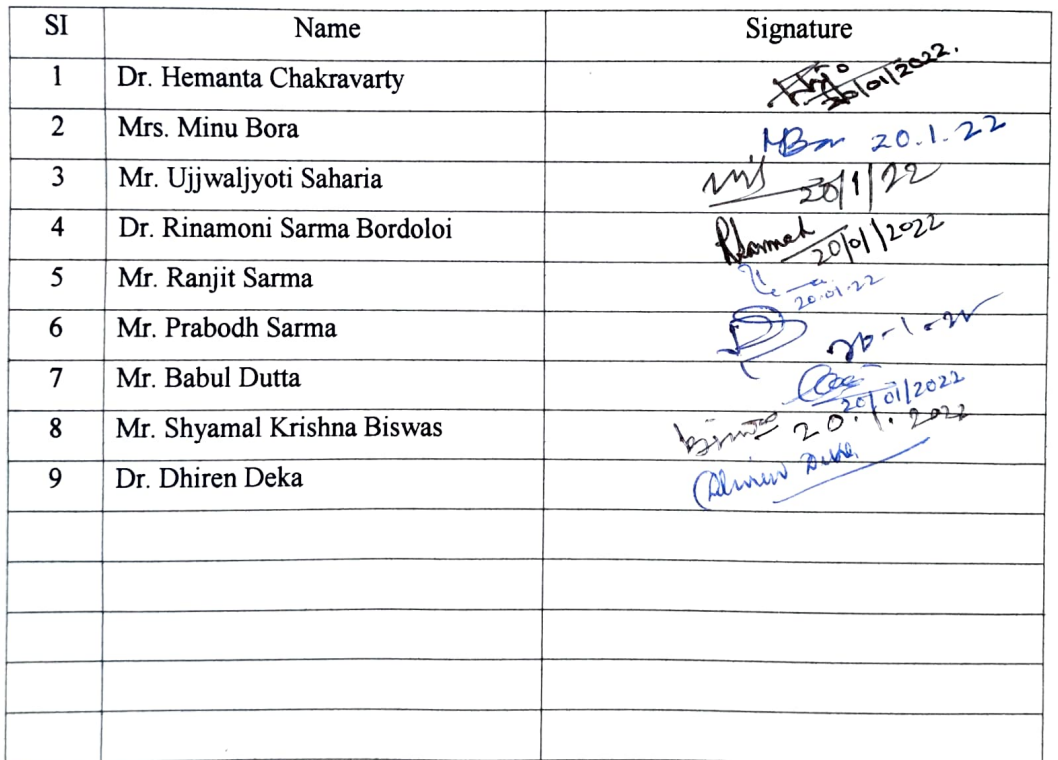 SI Name Signature
1 Dr. Hemanta Chakravarty 20/01/2022.
2 Mrs. Minu Bora MBora 20.1.22
3 Mr. Ujjwaljyoti Saharia 20/1/22
4 Dr. Rinamoni Sarma Bordoloi 20/01/2022
5 Mr. Ranjit Sarma 20.01.22
6 Mr. Prabodh Sarma 20-1-22
7 Mr. Babul Dutta 20/01/2022
8 Mr. Shyamal Krishna Biswas 20.1.2022
9 Dr. Dhiren Deka Dhiren Deka